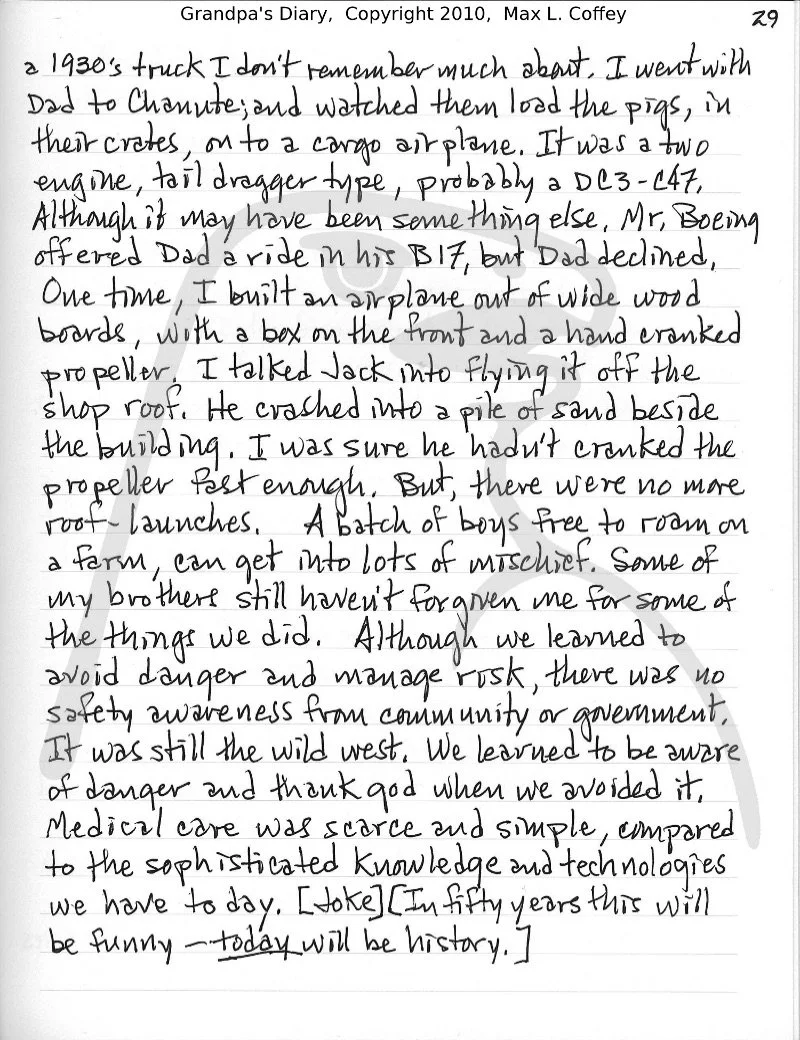 Grandpa's Diary, Copyright 2010, Max L. Coffey
29
a 1930's truck I don't remember much about. I went with
Dad to Chanute; and watched them load the pigs, in
their crates, on to a cargo airplane. It was a two
engine, tail dragger type, probably a DC3-C47.
Although it may have been something else. Mr. Boeing
offered Dad a ride in his B17, but Dad declined.
One time, I built an airplane out of wide wood
boards, with a box on the front and a hand cranked
propeller. I talked Jack into flying it off the
shop roof. He crashed into a pile of sand beside
the building. I was sure he hadn't cranked the
propeller fast enough. But, there were no more
roof-launches. A batch of boys free to roam on
a farm, can get into lots of mischief. Some of
my brothers still haven't forgiven me for some of
the things we did. Although we learned to
avoid danger and manage risk, there was no
safety awareness from community or government.
It was still the wild west. We learned to be aware
of danger and thank god when we avoided it.
Medical care was scarce and simple, compared
to the sophisticated knowledge and technologies
we have to day. [Joke] [In fifty years this will
be funny – today will be history.]